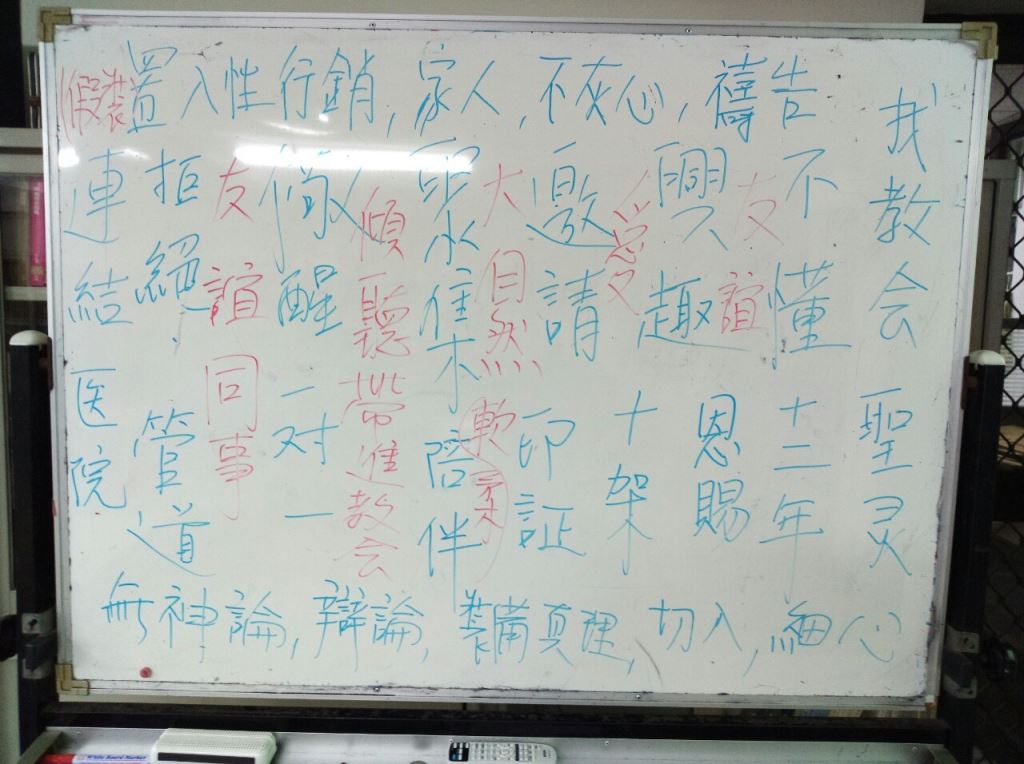 (假裝)置入性行銷,家人,不灰心,禱告
找教会 聖灵
不懂 十二年
友誼
興趣 恩賜
愛 十架
邀請 印証
大自然 軟柔
聚集 陪伴
傾聽 帶進教会
儆醒 一对一
友誼 同事
拒絕, 管道
連結 医院
無神論,辯論,裝備真理,切入,細心
White Board Marker